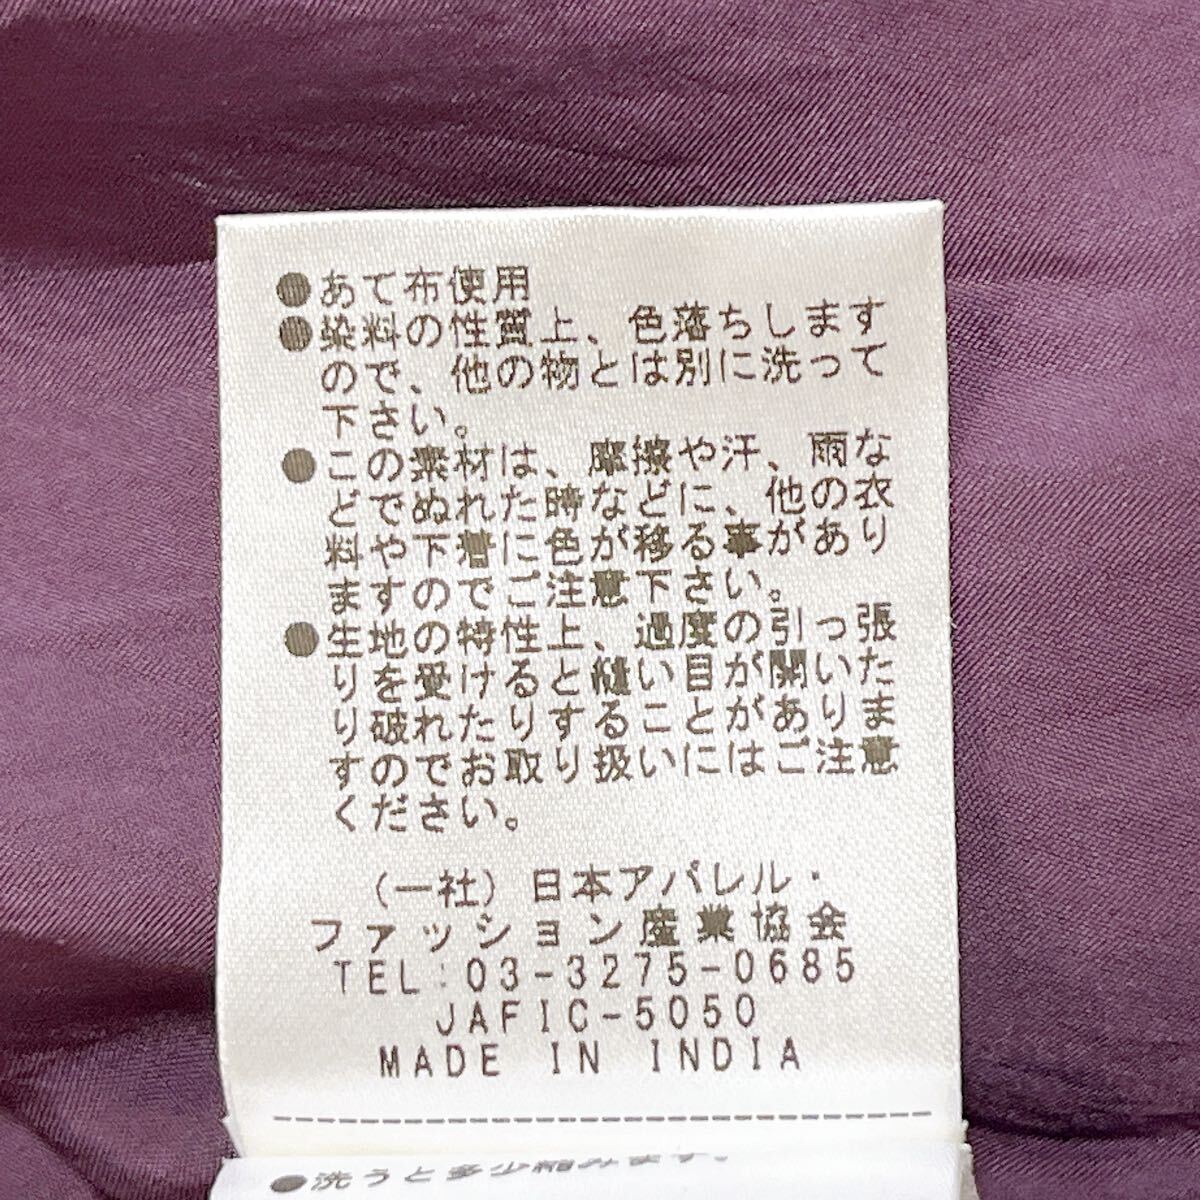 ●あて布使用
●染料の性質上、色落ちします
ので、他の物とは別に洗って
下さい。
●この素材は、摩擦や汗、雨な
どでぬれた時などに、他の衣
料や下着に色が移る事があり
ますのでご注意下さい。
●生地の特性上、過度の引っ張
りを受けると縫い目が開いた
り破れたりすることがありま
すのでお取り扱いにはご注意
ください。
(一社)日本アパレル・
ファッション産業協会
TEL:03-3275-0685
JAFIC-5050
MADE IN INDIA
●洗うと多少縮みます。